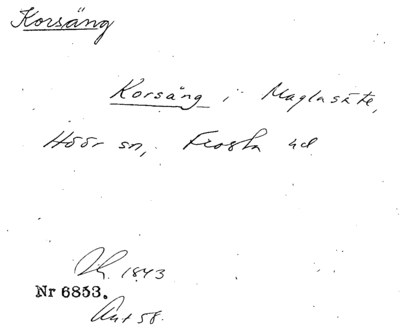 Korsäng
Korsäng i Maglasäte,
Höör sn, Frosta hd
Sk. 1843
Nr 6853.
Ant 58.